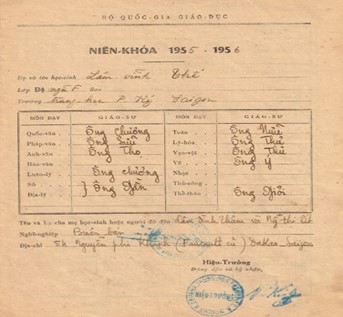 BỘ QUỐC-GIA GIÁO-DỤC
NIÊN-KHÓA 1955 - 1956
Họ và tên học-sinh Lâm vĩnh Thế
Lớp Đệ ngũ F Ban
Trường Trung-học P. Ký Saigon
MÔN DẠY GIÁO-SƯ MÔN DẠY GIÁO-SƯ
Quốc-văn Ông Chưởng Toán Ông
Pháp-văn Ông Sửu Lý-hóa Ông Thử
Anh-văn Ông Thọ Vạn-vật Ông Thử
Hán-văn Vẽ Ông Ý
Luân-lý Ông Chưởng Nhạc
Sử Nữ-công
Địa-lý Ông Thể-thao Ông Giỏi
Tên và họ cha mẹ học-sinh hoặc người đỡ đầu Lâm Đình Thâm và Ng thị
Nghề-nghiệp Buôn bán
Địa-chỉ Nguyễn phi Khanh cũ) Dakao Saigon
Hiệu-Trưởng
HIỆU TRƯỞNG